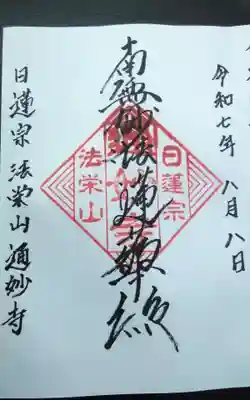 令和七年八月八日
南無妙法蓮華経
日蓮宗
法栄山
日蓮宗 法栄山 通妙寺